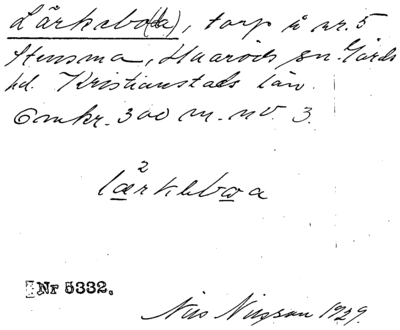 Lärkabo(da), torp å nr. 5
Stensma, Huaröds sn. Gärds
hd. Kristianstads län.
Omkr. 300 m. nv 3.
2
lärkeboa
Nr 5332.
Nils Nilsson 1929.